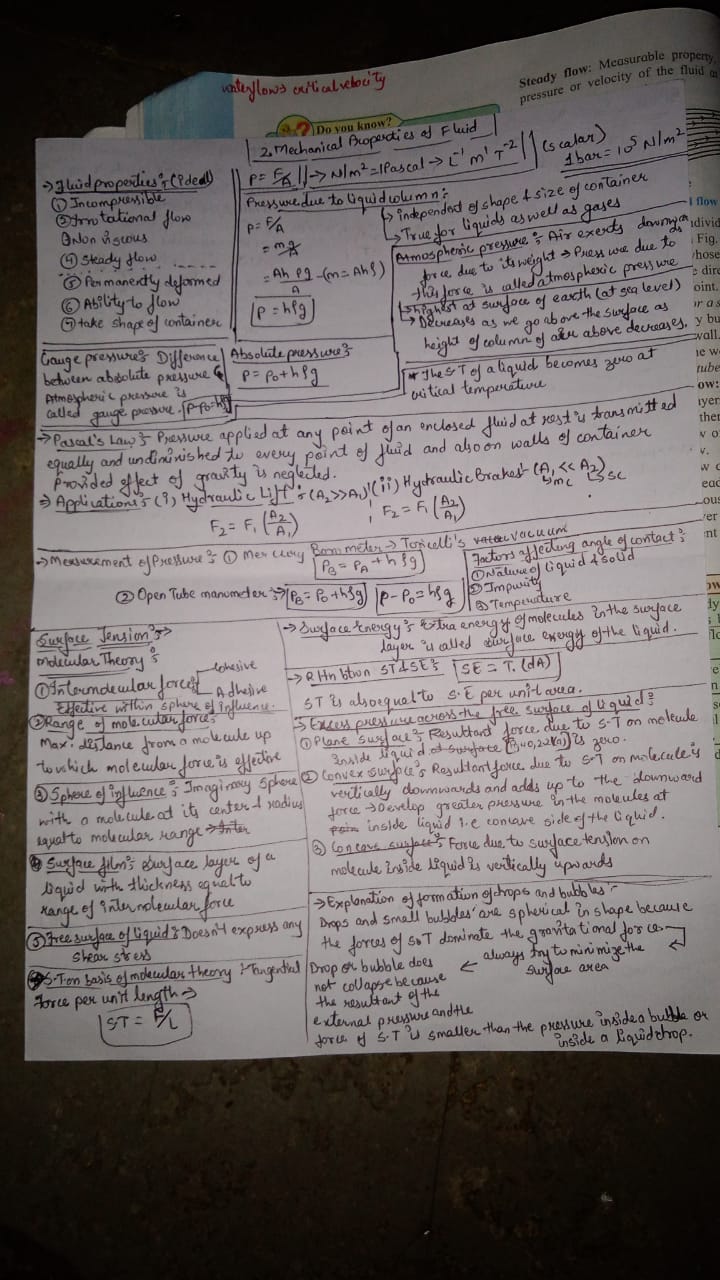 waterflows critical velocity
Steady flow: Measurable property,
pressure or velocity of the fluid
Do you know?
2. Mechanical Properties of Fluid
→ Fluid properties:- (ideal)
① Incompressible
② Irrotational flow
③ non viscous
④ Steady flow
⑤ Permanently deformed
⑥ Ability to flow
⑦ take shape of container
P = F/A → N/m² = 1Pascal → L⁻¹ M¹ T⁻² (scalar)
1bar = 10⁵ N/m²
Pressure due to liquid column:
→ independent of shape & size of container
→ True for liquids as well as gases
P = F/A
= mg/A
= Ahρg/A - (m = Ahρ)
P = hρg
Atmospheric pressure: Air exerts downward
force due to its weight → Pressure due to
this force is called atmospheric pressure
→ highest at surface of earth (at sea level)
→ Decreases as we go above the surface as
height of column of air above decreases,
Gauge pressure: Difference
between absolute pressure &
Atmospheric pressure is
called gauge pressure. P-P₀=hρg
Absolute pressure:
P = P₀ + hρg
* The S.T of a liquid becomes zero at
critical temperature
→ Pascal's Law: Pressure applied at any point of an enclosed fluid at rest is transmitted
equally and undiminished to every point of fluid and also on walls of container
Provided effect of gravity is neglected.
→ Applications: (i) Hydraulic Lift: (A₂>>A₁) (ii) Hydraulic Brakes (A₁ << A₂)
mc sc
F₂ = F₁ (A₂/A₁) F₂ = F₁ (A₂/A₁)
→ Measurement of Pressure: ① Mercury Barometer → Toricelli's vacuum
P_B = P_A + hρg
② Open Tube manometer: P_B = P₀ + hρg P-P₀ = hρg
Factors affecting angle of contact:
① Nature of liquid & solid
② Impurity
③ Temperature
Surface Tension:
Molecular Theory:
① Intermolecular force Cohesive
Adhesive
Effective within sphere of influence.
② Range of molecular force:
Max. distance from a molecule up
to which molecular force is effective
③ Sphere of influence: Imaginary Sphere
with a molecule at its center & radius
equal to molecular range
④ Surface film: Surface layer of a
liquid with thickness equal to
range of intermolecular force
⑤ Free surface of liquid: Doesn't express any
shear stress
S.T on basis of molecular theory: Tangential
force per unit length →
S.T = F/L
→ Surface Energy: Extra energy of molecules in the surface
layer is called surface energy of the liquid.
→ Rltn btwn ST & SE: SE = T. (dA)
ST is also equal to S.E per unit area.
→ Excess pressure across the free surface of liquid:
① Plane surface: Resultant force due to S.T on molecule
inside liquid is zero.
② Convex surface: Resultant force due to S.T on molecule is
vertically downwards and adds up to the downward
force → Develop greater pressure in the molecules at
inside liquid i.e concave side of the liquid.
③ Concave surface: Force due to surface tension on
molecule inside liquid is vertically upwards
→ Explanation of formation of drops and bubbles:
Drops and small bubbles are spherical in shape because
the forces of S.T dominate the gravitational force
always try to minimize the
surface area
Drop or bubble does
not collapse because
the resultant of the
external pressure and the
force of S.T is smaller than the pressure inside a bubble or
inside a liquid drop.